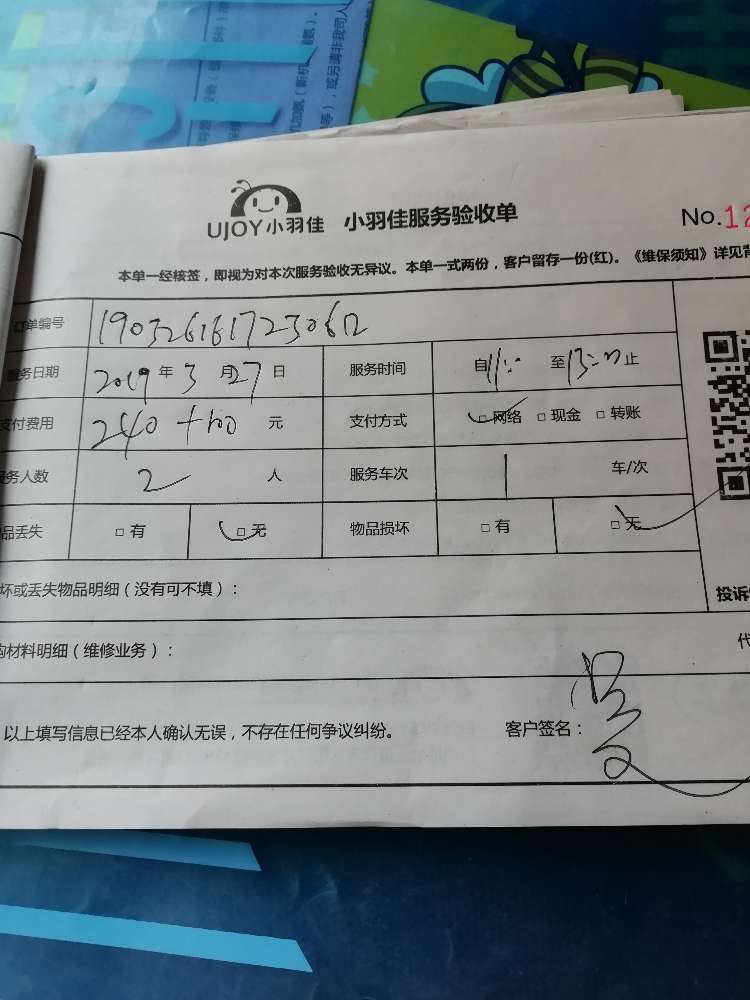 UJOY小羽佳 小羽佳服务验收单 No.12
本单一经核签，即视为对本次服务验收无异议。本单一式两份，客户留存一份(红)。《维保须知》详见背
订单编号
服务日期 2019 年 3 月 27 日 服务时间 自 11:00 至 13:00 止
支付费用 240 +100 元 支付方式 □网络 □现金 □转账
服务人数 2 人 服务车次 1 车/次
品丢失 □有 □无 物品损坏 □有 □无
坏或丢失物品明细（没有可不填）：
投诉
购材料明细（维修业务）：
以上填写信息已经本人确认无误，不存在任何争议纠纷。 客户签名：